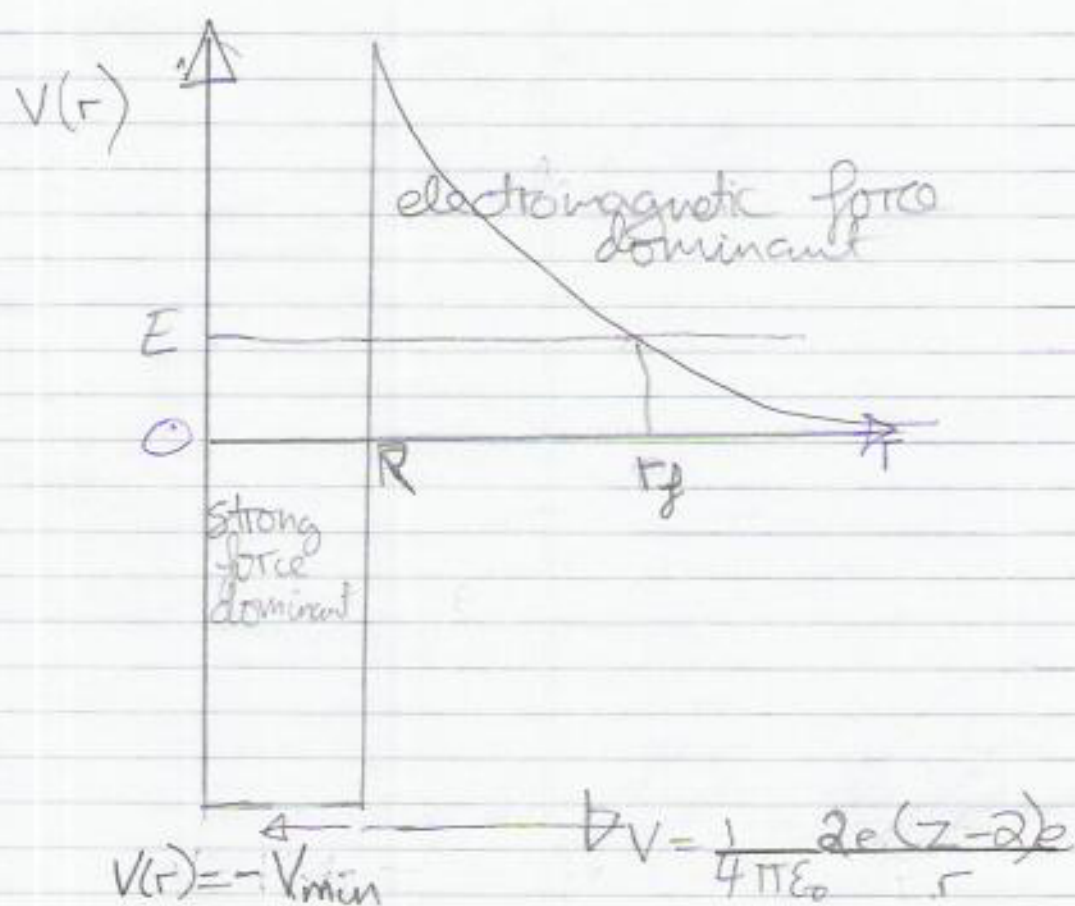 V(r)
electromagnetic force
dominant
E
O
R
rf
r
strong
force
dominant
V(r)=-Vmin
V = 1/4πε₀ 2e(Z-2)e/r